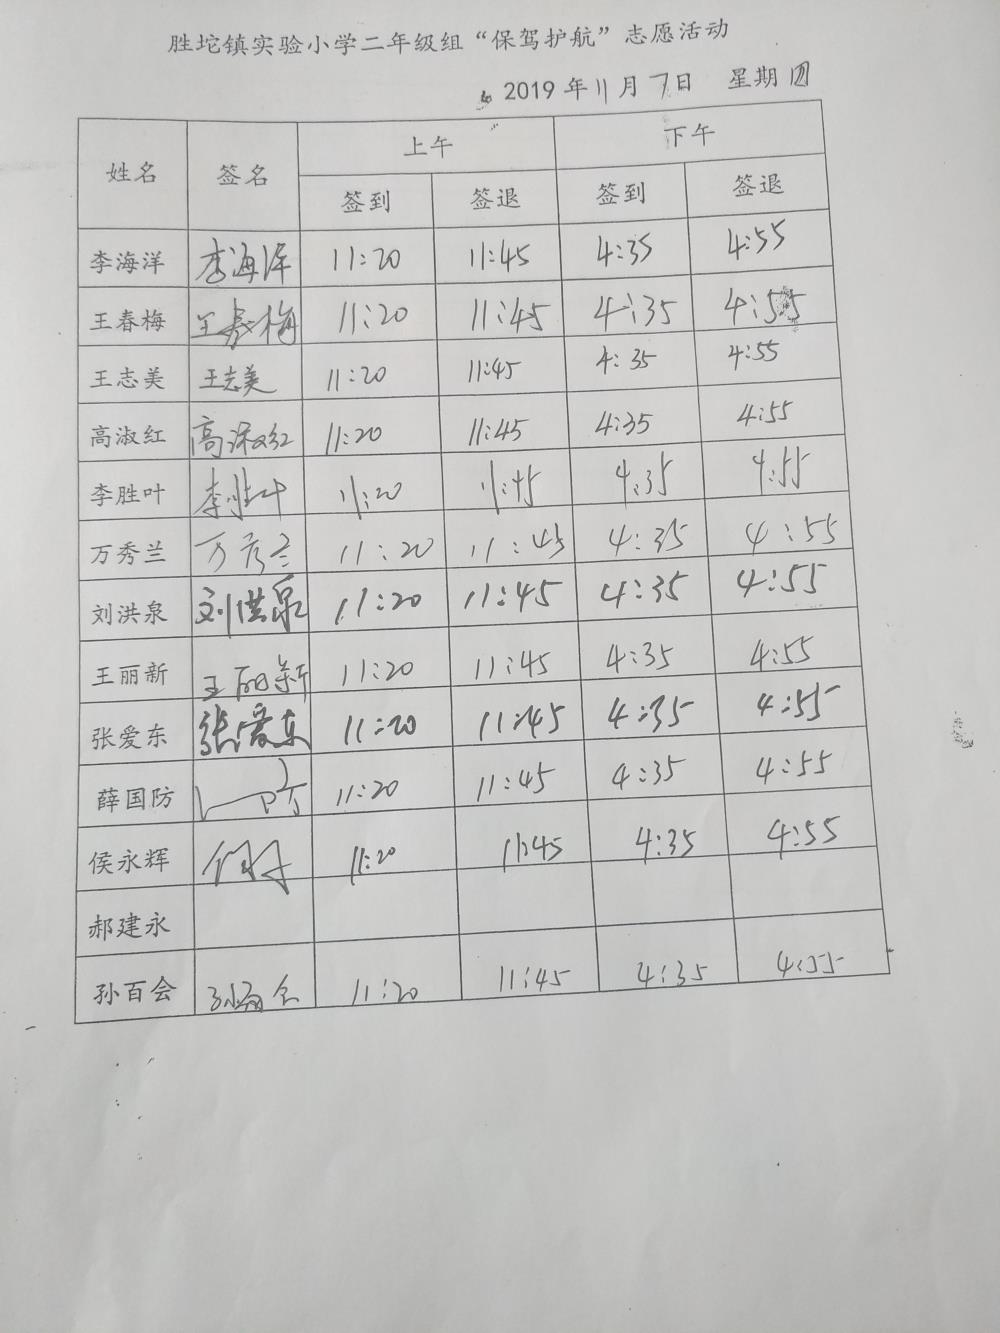 胜坨镇实验小学二年级组“保驾护航”志愿活动
2019年11月7日 星期四
姓名 签名 上午 下午
签到 签退 签到 签退
李海洋 李海洋 11:20 11:45 4:35 4:55
王春梅 王春梅 11:20 11:45 4:35 4:55
王志美 王志美 11:20 11:45 4:35 4:55
高淑红 高淑红 11:20 11:45 4:35 4:55
李胜叶 李胜叶 11:20 11:45 4:35 4:55
万秀兰 万秀兰 11:20 11:45 4:35 4:55
刘洪泉 刘洪泉 11:20 11:45 4:35 4:55
王丽新 王丽新 11:20 11:45 4:35 4:55
张爱东 张爱东 11:20 11:45 4:35 4:55
薛国防 11:20 11:45 4:35 4:55
侯永辉 11:20 11:45 4:35 4:55
郝建永
孙百会 孙百会 11:20 11:45 4:35 4:55